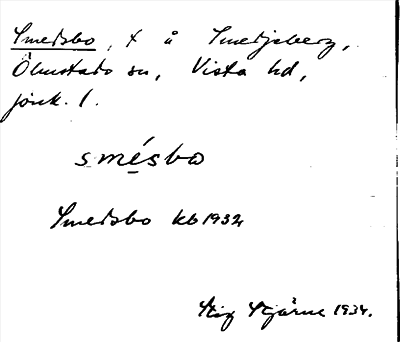 Smedsbo, t å Smedjeberg,
Ölmstads sn, Vista hd,
jönk. l.
smésbo
Smedsbo kb 1932
Stig Stjärne 1934.